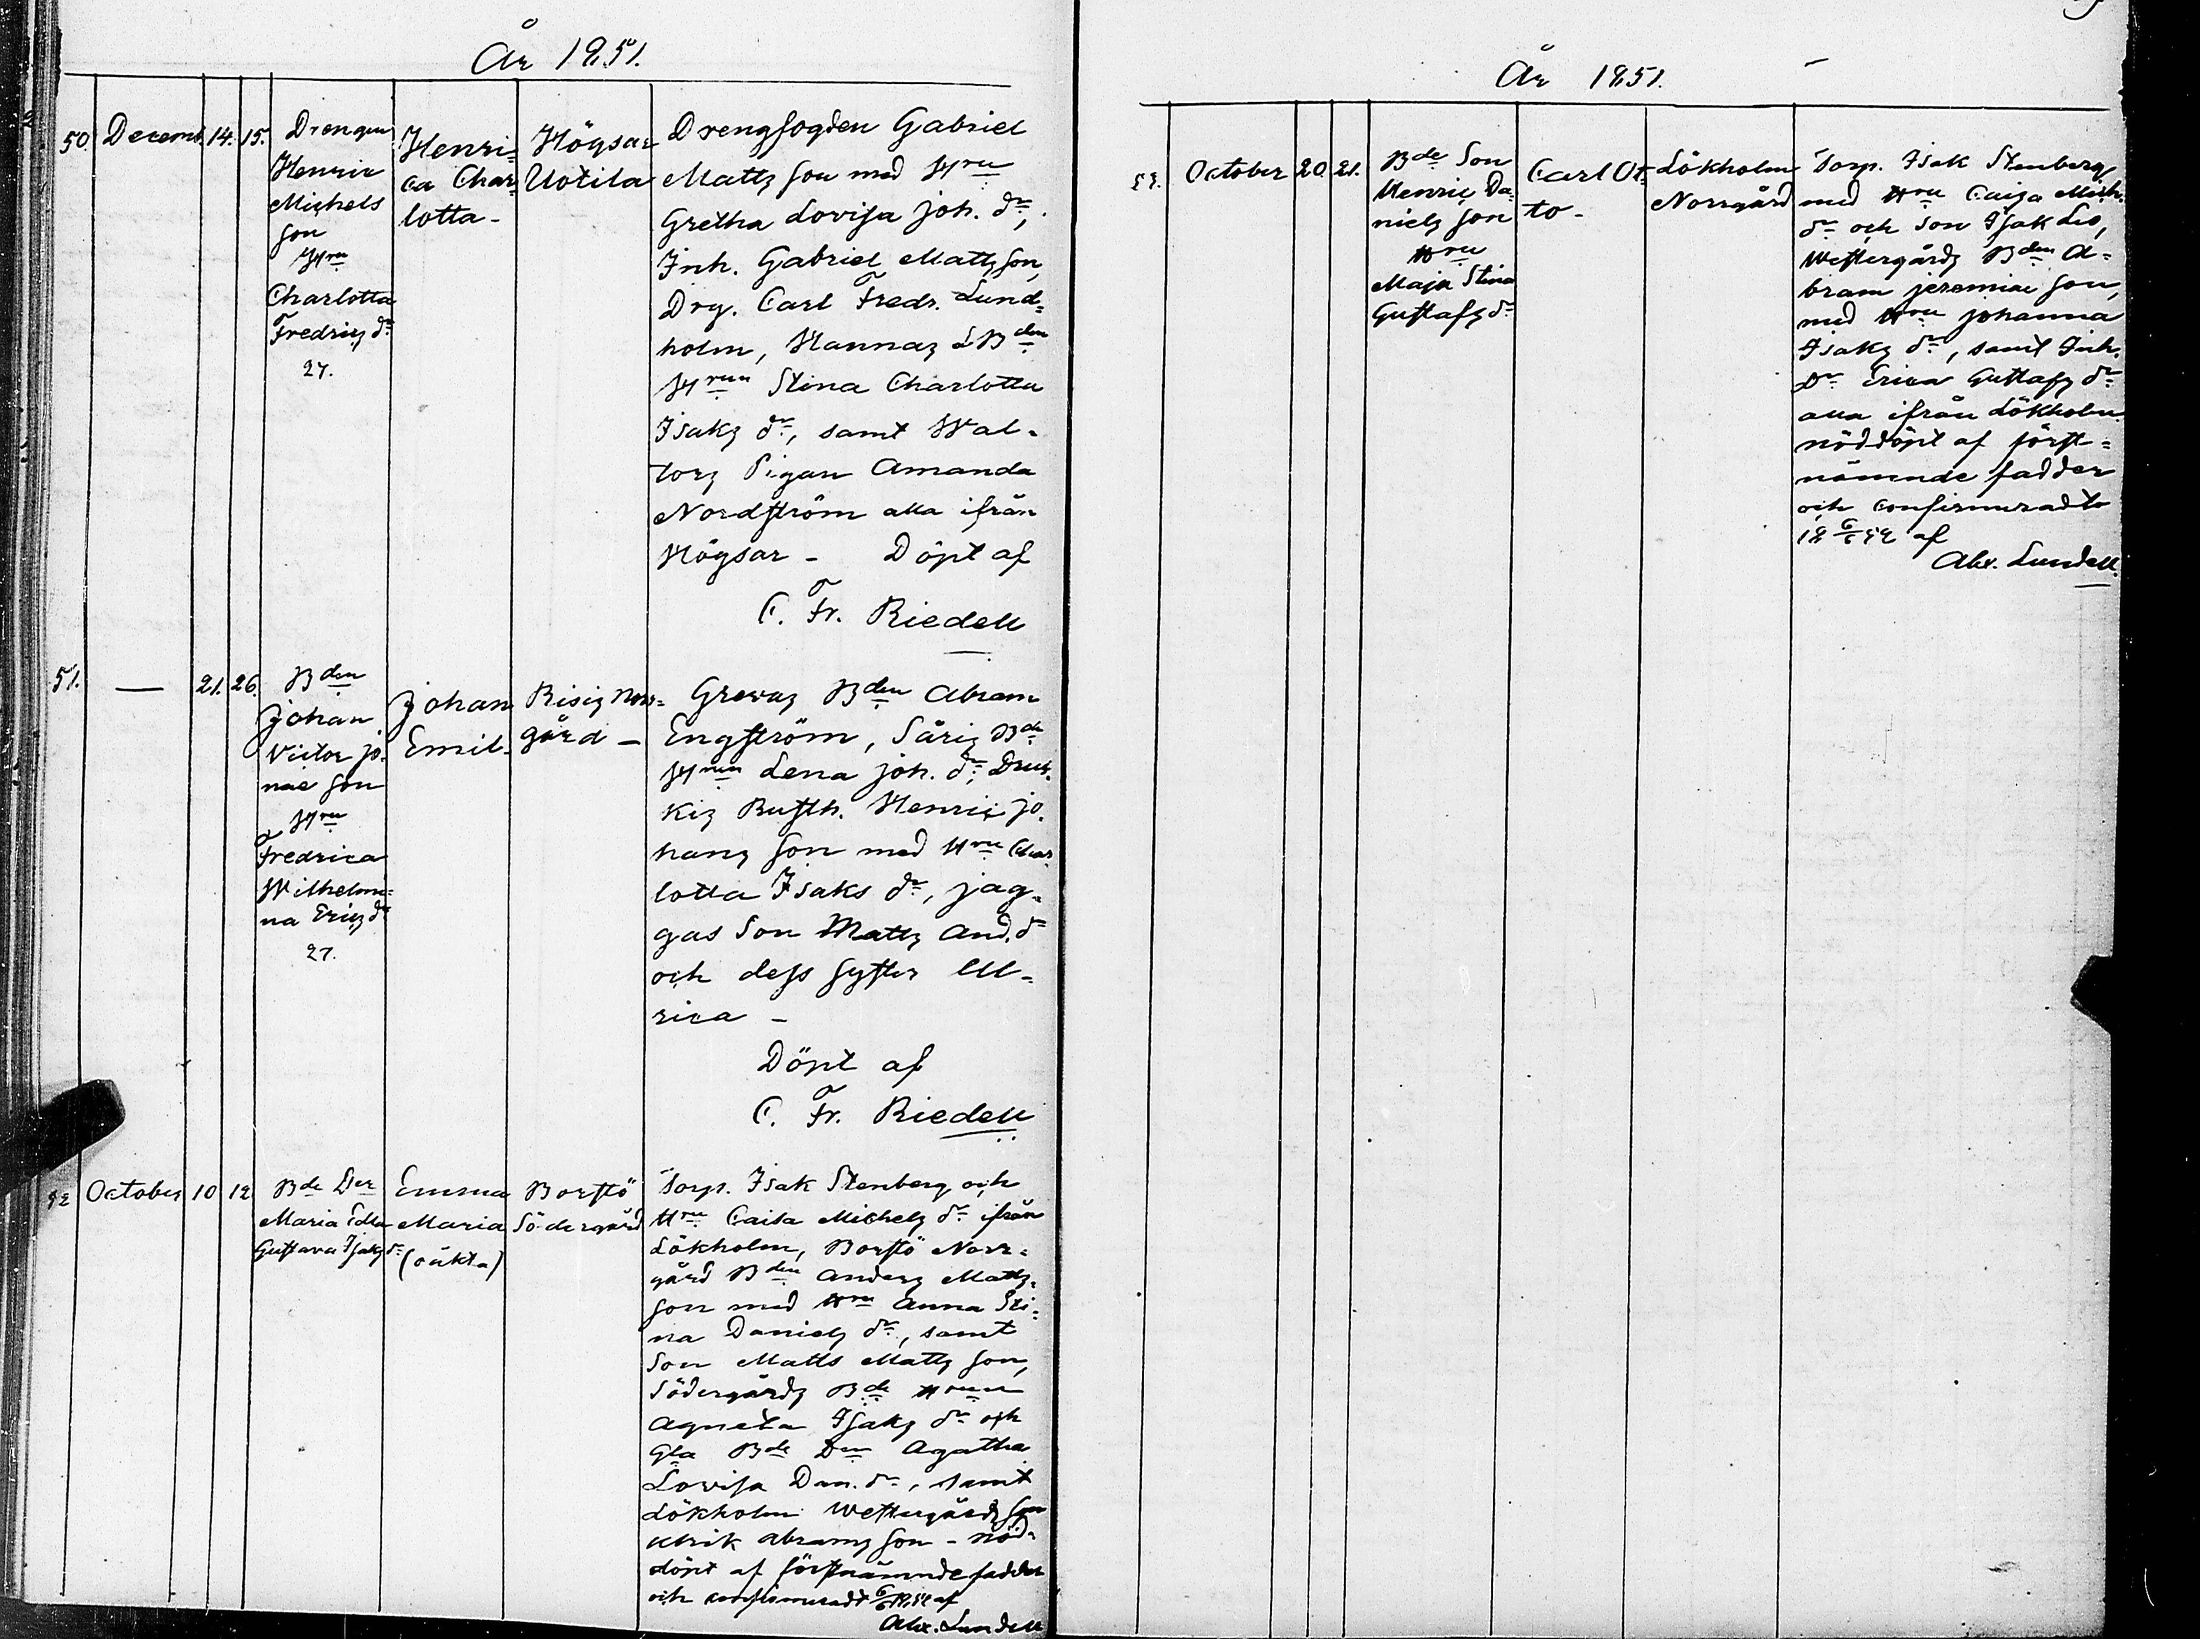 År 1851.
50. Decemb. 14. 15.
Drengen
Henric
Michels
son
Hru
Charlotta
Fredriz dr
27.
Henri=
ca Char=
lotta -
Högsar
Uotila
Drengfogden Gabriel
Mattz son med Hru
Gretha Lovisa Joh. dr,
Inh. Gabriel Mattz son,
Drg. Carl Fredr. Lund=
holm, Hannaz LBden
Hrun Stina Charlotta
Isakz dr, samt Wal-
torz Pigan Amanda
Nordström alla ifrån
Högsar - Döpt af
C. Fr. Riedell
51. — 21. 26.
Bden
Johan
Victor Jo-
nae son
Hru
Fredrica
Wilhelmi-
na Ericz dr
27.
Johan
Emil -
Risiz Norr=
gård -
Grevaz Bden Abram
Engström, Såriz Bde
Hrun Lena Joh. dr,
kiz Rusth. Henric Jo-
hanz son med Hru Char-
lotta Isaks dr, Jag-
gas Son Mattz And. dr
och dess syster Ul-
rica -
Döpt af
C. Fr. Riedell
52 October 10 12
Bde Der
Maria Edla
Gustava Isakz dr
Emma
Maria
(oäkta)
Borstö
Södergård
Torp. Isak Stenberg och
Hru Caisa Michelz dr ifrån
Lökholm, Borstö Norr=
gård Bden Anderz Mattz-
son med Hru Anna Sti-
na Danielz dr, samt
Son Matts Mattz son,
Södergårdz Bde Hrun
Agneta Isakz dr och
Gla Bde Dn Agatha
Lovisa Dan. dr, samt
Lökholm Westergårdz Son
Ulrik Abramz son - nöd-
döpt af förstnämnde fadder
och confirmeradt 6/6 1852 af
Alex. Lundell
År 1851.
53. October 20. 21.
Bde Son
Henric Da-
nielz son
Hru
Maja Stina
Gustafz dr
Carl Ot-
to -
Lökholm
Norrgård
Torp. Isak Stenberg,
med Hru Caisa Mich.
dr och Son Isak Leo,
Westergårdz Bden A-
bram Jeremiae son,
med Hru Johanna
Isakz dr, samt Inh.
Dr Erica Gustafz dr
alla ifrån Lökholm
nöddöpt af först-
nämnde fadder
och confirmeradt
18 6/6 52 af
Alex. Lundell.